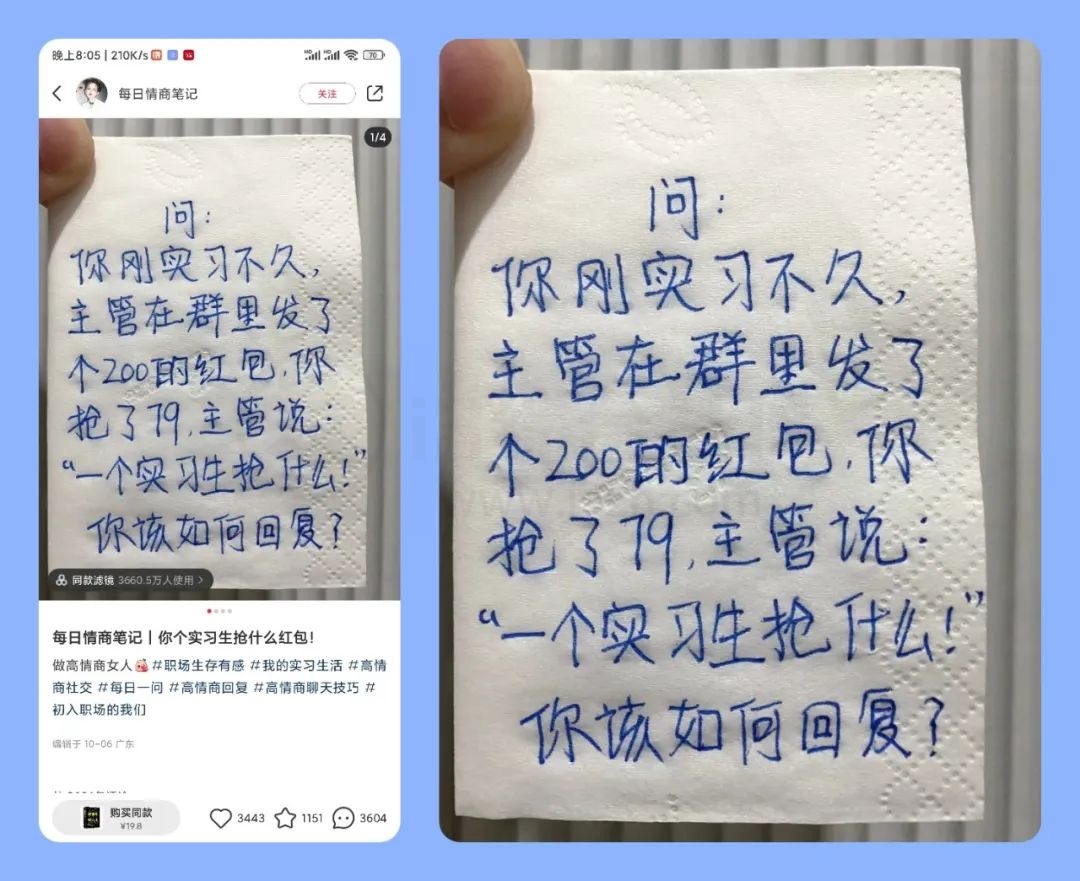 晚上8:05 | 210K/s
70
每日情商笔记
关注
1/4
问:
你刚实习不久,
主管在群里发了
个200的红包.你
抢了79,主管说:
“一个实习生抢什么!”
你该如何回复?
同款滤镜 3660.5万人使用 >
每日情商笔记 | 你个实习生抢什么红包!
做高情商女人 #职场生存有感 #我的实习生活 #高情
商社交 #每日一问 #高情商回复 #高情商聊天技巧 #
初入职场的我们
编辑于 10-06 广东
购买同款
¥19.8
3443
1151
3604
问:
你刚实习不久,
主管在群里发了
个200的红包.你
抢了79,主管说:
“一个实习生抢什么!”
你该如何回复?